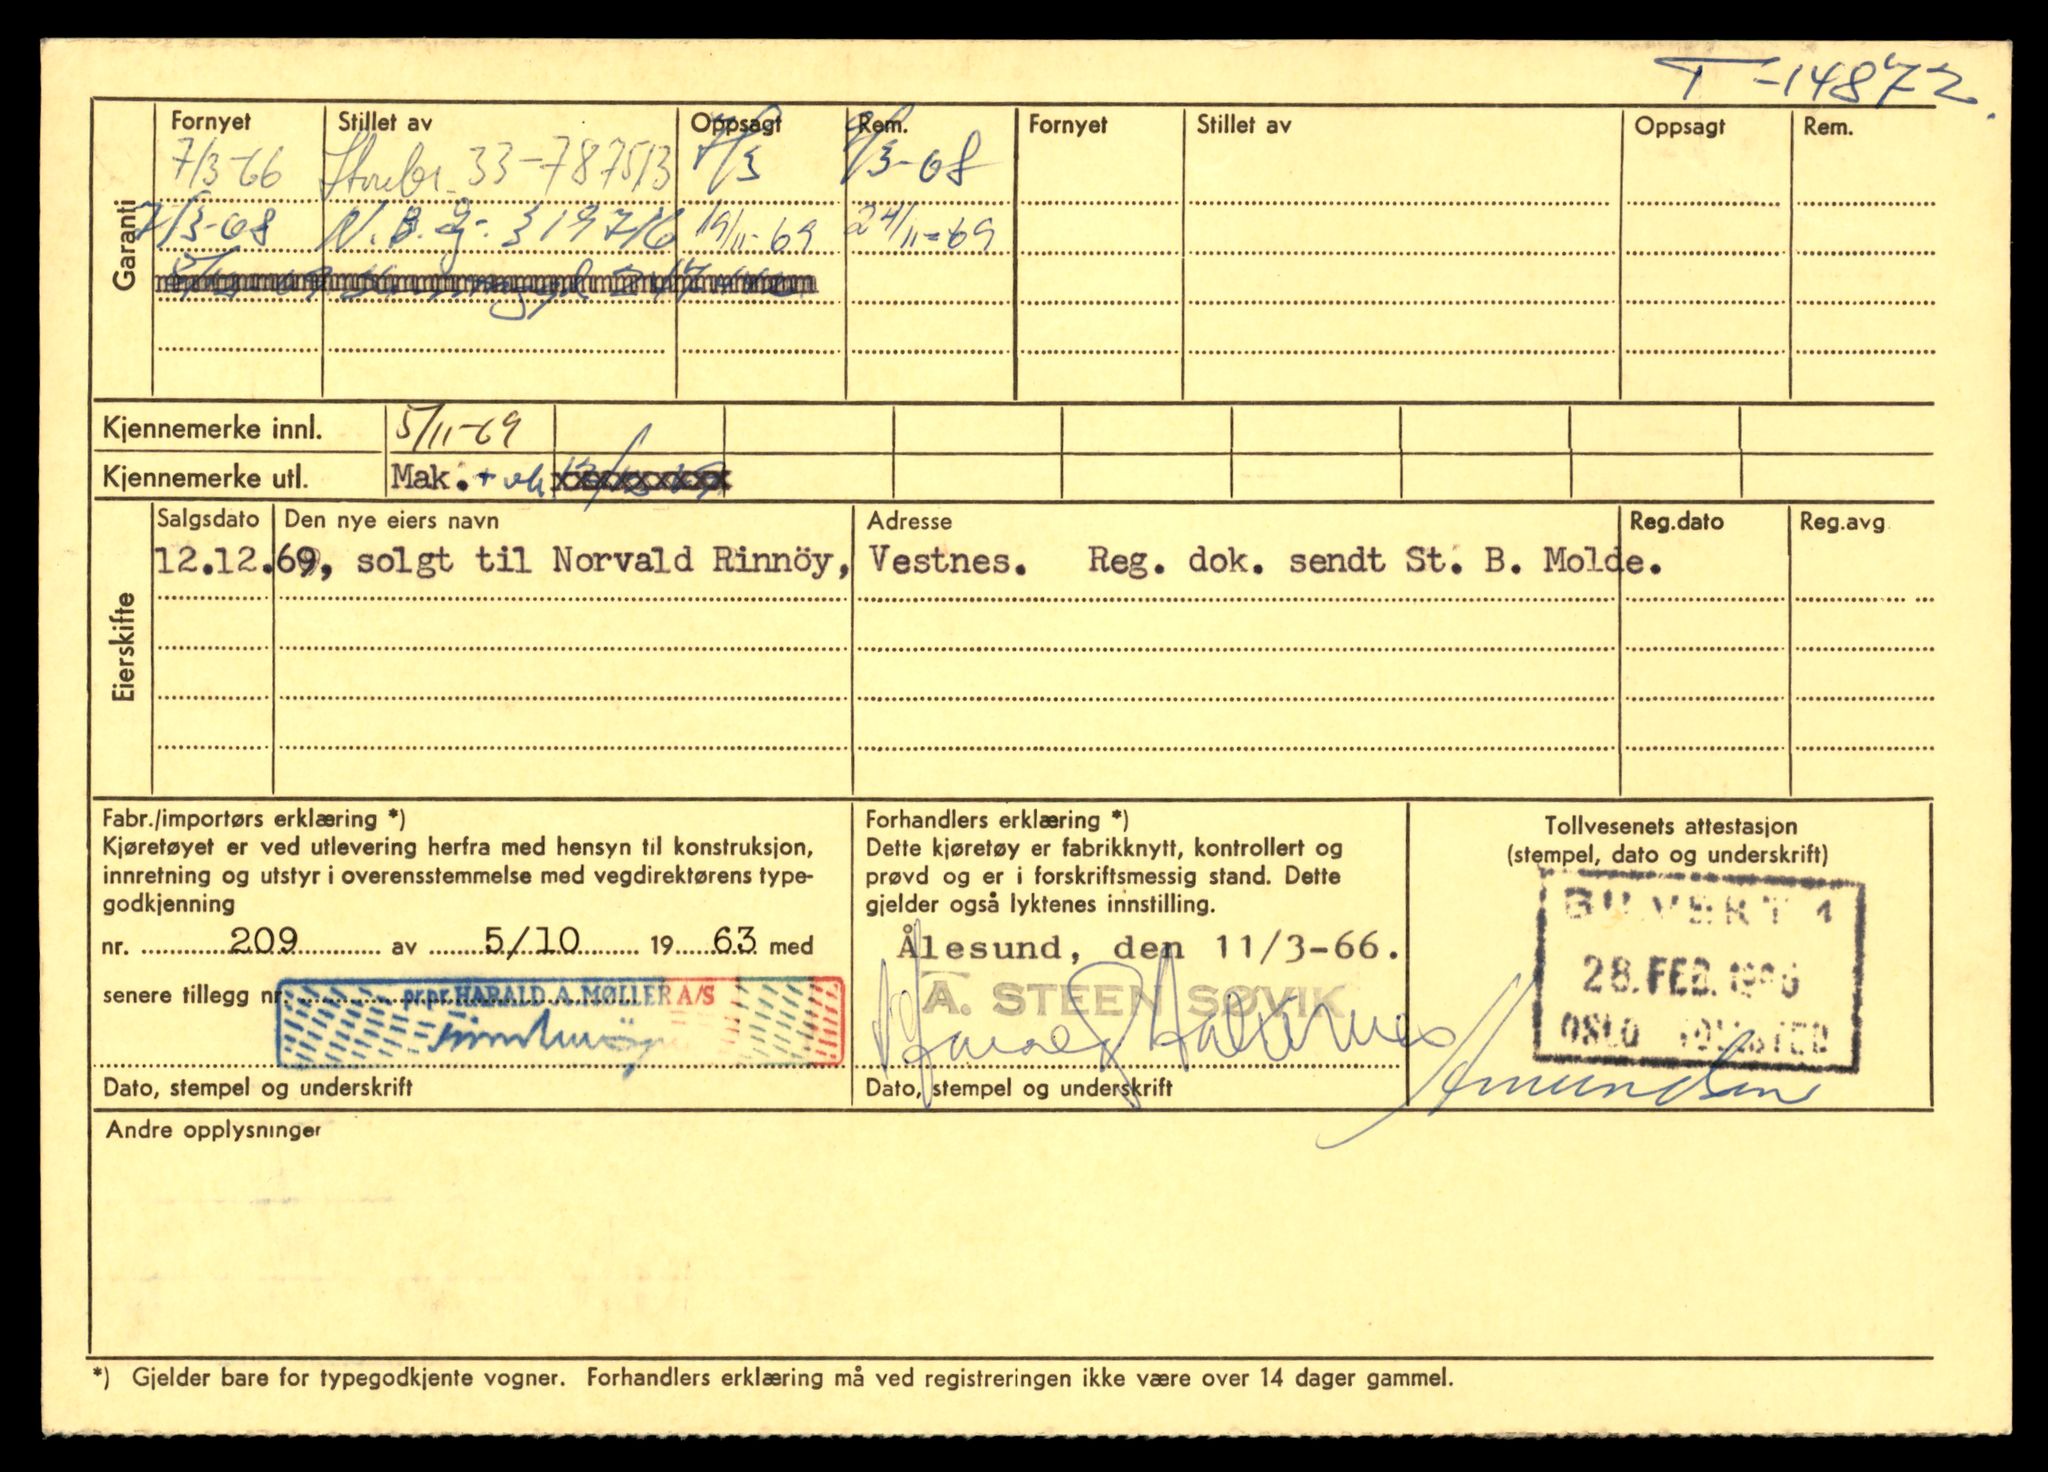 T-14872
Garanti
Fornyet Stillet av Oppsagt Rem. Fornyet Stillet av Oppsagt Rem.
7/3-66 33-787513 7/3 9/3-68
7/3-68 N.B.G. 319716 19/11-69 24/11-69
Kjennemerke innl. 5/11-69
Kjennemerke utl. Mak. +
Eierskifte
Salgsdato Den nye eiers navn Adresse Reg.dato Reg.avg
12.12.69, solgt til Norvald Rinnöy, Vestnes. Reg. dok. sendt St. B. Molde.
Fabr./importørs erklæring *)
Kjøretøyet er ved utlevering herfra med hensyn til konstruksjon,
innretning og utstyr i overensstemmelse med vegdirektørens type-
godkjenning
nr. 209 av 5/10 19 63 med
senere tillegg nr.
pr.pr. HARALD A. MØLLER A/S
Dato, stempel og underskrift
Forhandlers erklæring *)
Dette kjøretøy er fabrikknytt, kontrollert og
prøvd og er i forskriftsmessig stand. Dette
gjelder også lyktenes innstilling.
Ålesund, den 11/3-66.
A. STEEN SØVIK
Dato, stempel og underskrift
Tollvesenets attestasjon
(stempel, dato og underskrift)
BILVERT 1
28. FEB. 1966
OSLO TOLLSTED
Amundsen
Andre opplysninger
*) Gjelder bare for typegodkjente vogner. Forhandlers erklæring må ved registreringen ikke være over 14 dager gammel.